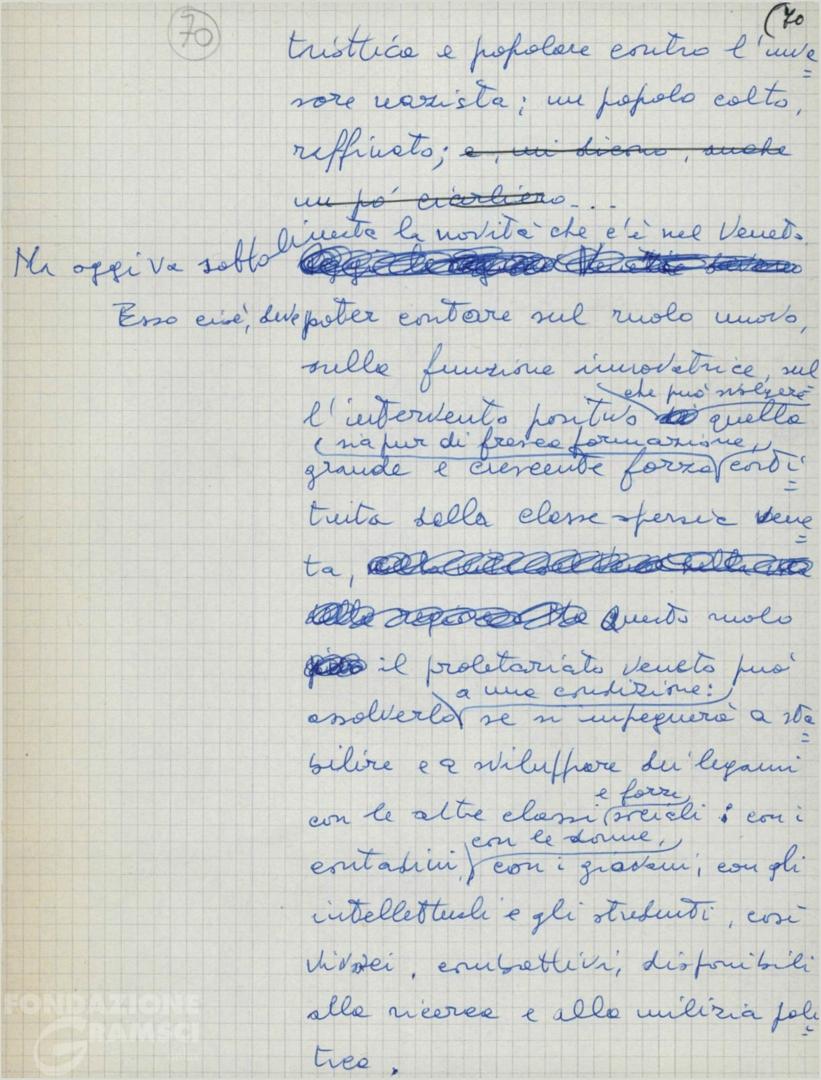 70
(70
triottica e popolare contro l'inva
sore nazista; un popolo colto,
raffinato; e, mi dicono, anche
un pò ciarliero...
Ma oggi va sottolineata la novità che c'è nel Veneto.
Esso cioè, deve poter contare sul ruolo nuovo,
sulla funzione innovatrice, sul
che può svolgere
l'intervento positivo quella
(sia pur di fresca formazione,)
grande e crescente forza costi
tuita dalla classe operaia vene
ta,
Questo ruolo
il proletariato veneto può
a una condizione:
assolverlo se si impegnerà a sta
bilire e a sviluppare dei legami
e forze
con le altre classi sociali: con i
con le donne,
contadini, con i giovani, con gli
intellettuali e gli studenti, così
vivaci, combattivi, disponibili
alla ricerca e alla milizia poli
tica.
FONDAZIONE
GRAMSCI